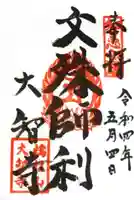 奉拝
令和四年
五月四日
文殊師利
大智寺